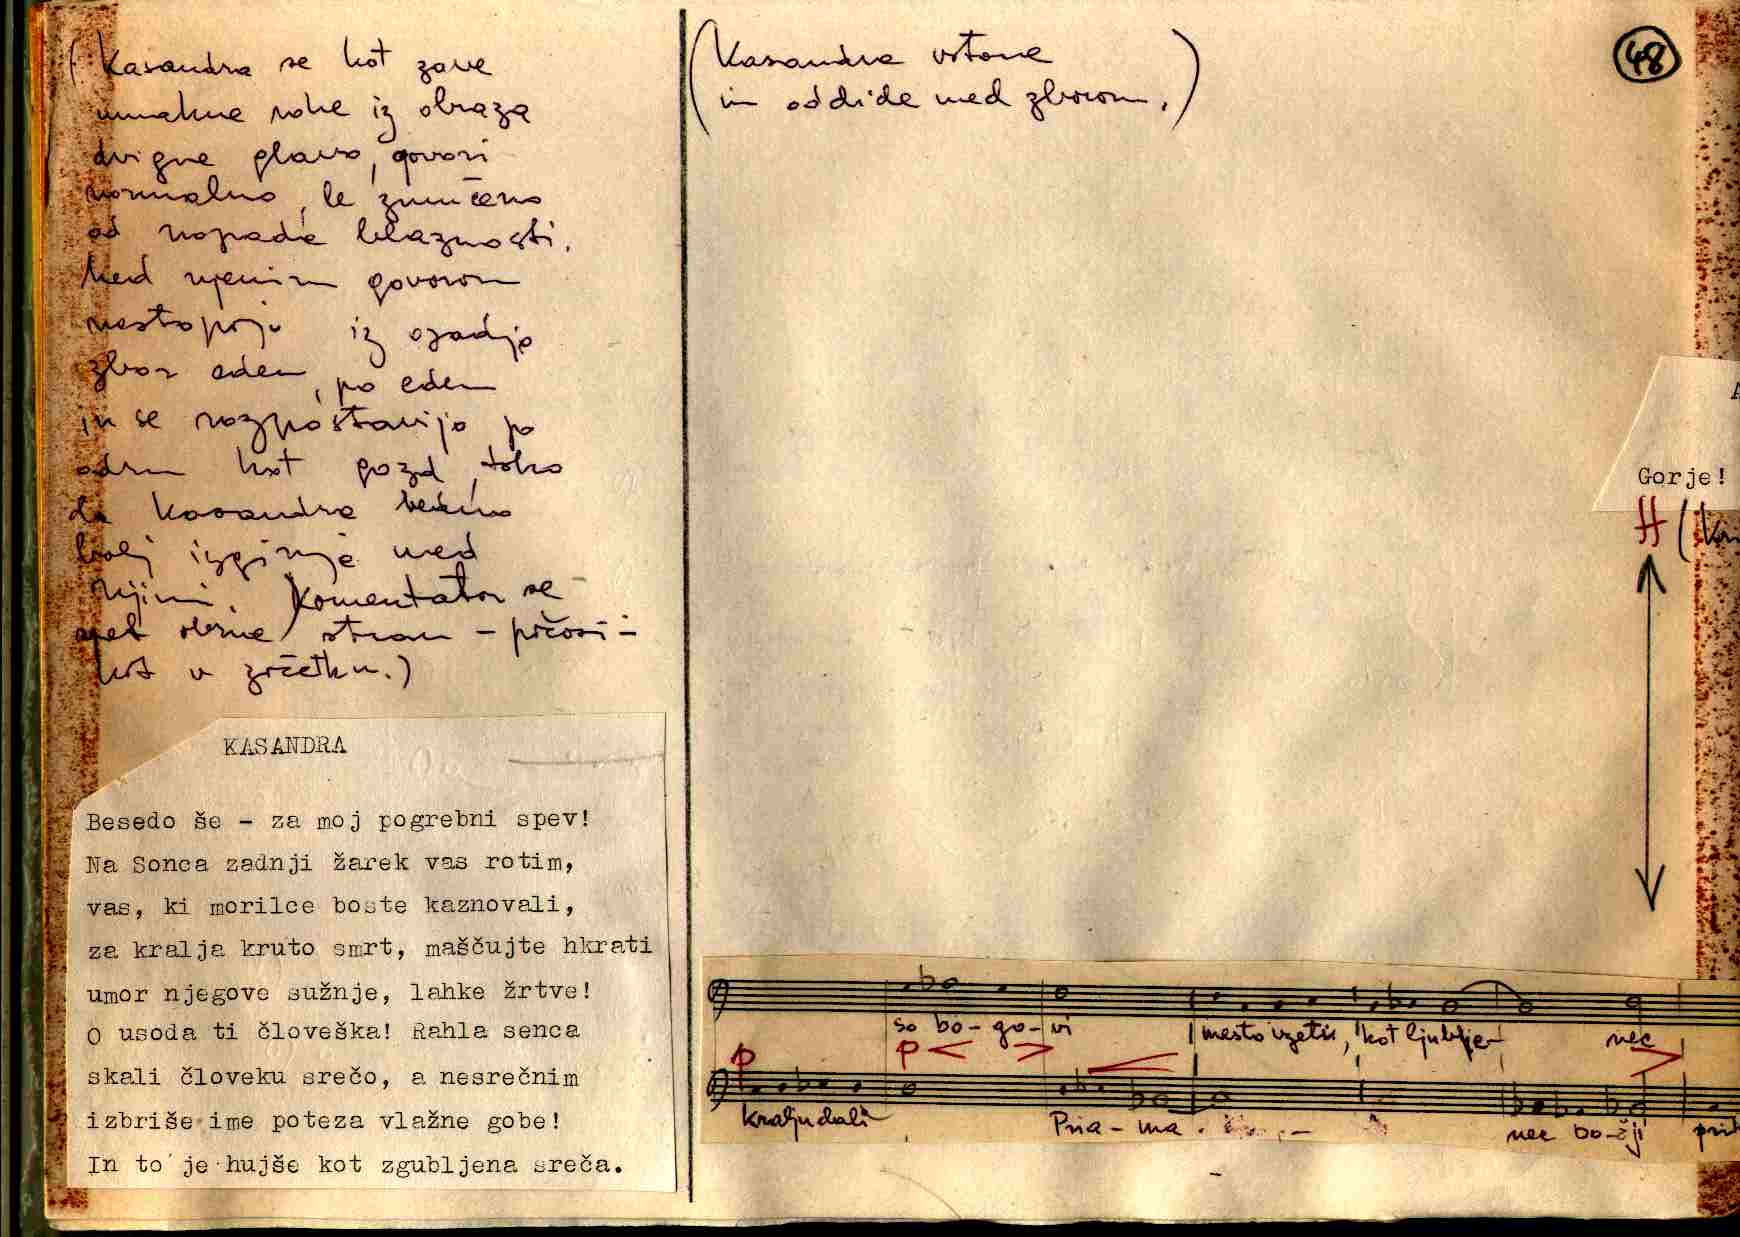 (Kasandra se kot zave
umakne roke iz obraza
dvigne glavo, govori
normalno, le zmučeno
od napada blaznosti.
Med njenim govorom
nastopajo iz ozadja
zbor eden, po eden
in se razpostavijo po
odru kot gozd, tako
da Kasandra vedno
bolj izginja med
njimi. Komentator se
spet obrne stran - počasi -
kot v začetku.)
KASANDRA
Besedo še - za moj pogrebni spev!
Na Sonca zadnji žarek vas rotim,
vas, ki morilce boste kaznovali,
za kralja kruto smrt, maščujte hkrati
umor njegove sužnje, lahke žrtve!
O usoda ti človeška! Rahla senca
skali človeku srečo, a nesrečnim
izbriše ime poteza vlažne gobe!
In to je hujše kot zgubljena sreča.
(Kasandra vstane
in oddide med zborom.)
48
Gorje!
H (
so bo-go-vi mesto vzeti, kot ljublje nec
p
p
kralju dali Pria-ma. nec bo-žji